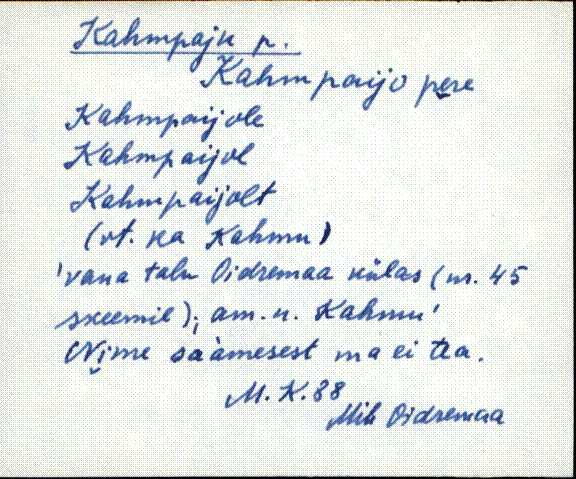 Kahmpaju p.
Kahmpaijo pere
Kahmpaijole
Kahmpaijol
Kahmpaijolt
(vt. ka Kahmu)
'vana talu Oidremaa külas (nr. 45
skeemil); am. n. Kahmu'
Nime saamesest ma ei tea.
M. K. 88
Mih Oidremaa